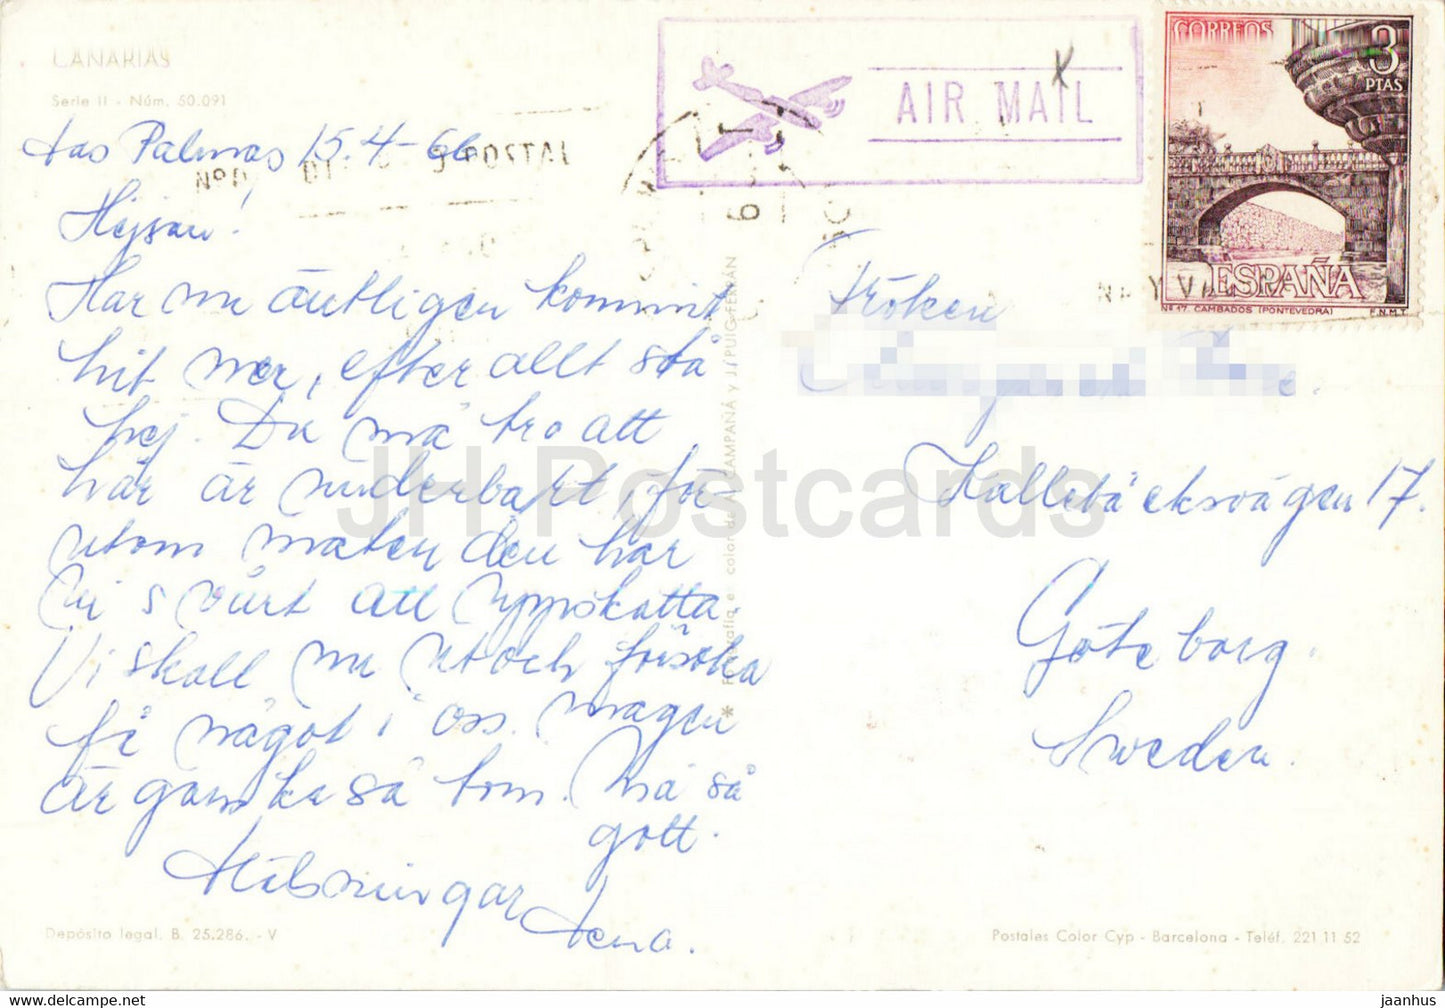 CANARIAS
Serie II - Núm. 50.091
Las Palmas 15.4-66
Hejsan!
Har nu äntligen kommit
hit ner, efter allt stå
hej. Du må tro att
här är underbart, för-
utom maten den har
vi svårt att uppskatta.
Vi skall nu ut och försöka
få något i oss. Magen
är ganska så tom. Må så
gott.
Hälsningar
Lena.
Depósito legal. B. 25.286. - V
POSTAL
AIR MAIL
CORREOS
3
PTAS
ESPAÑA
Nº 17. CAMBADOS (PONTEVEDRA)
F.N.M.T.
Fröken
Kallebäcksvägen 17.
Göteborg.
Sweden.
Postales Color Cyp - Barcelona - Teléf. 221 11 52
* Fotografía e color de CAMPAÑÁ y J. PUIG-FERRÁN
JH Postcards
www.delcampe.net
jaanhus